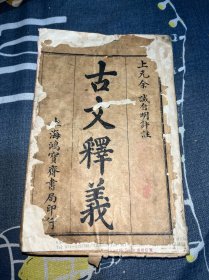 上元余 誠自明評註
古文釋義
上海鴻寶齋書局印行